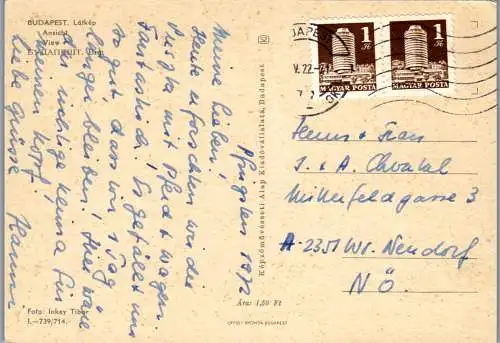 BUDAPEST. Látkép
Ansicht
View
Pfingsten 1972
Meine Lieben!
Heute erforschten wir die
Puszta mit Pferd + Wagen
Fantastisch! Es gefällt uns
so gut dass wir 1 Tag
länger bleiben! Hier wäre
das richtige Klima für
meinen Kopf!
Liebe Grüsse Hanni
Foto: Inkey Tibor
I.—739/714.
Képzőművészeti Alap Kiadóvállalata, Budapest
Ára: 1,50 Ft
OFFSET NYOMDA BUDAPEST
1 Ft
MAGYAR POSTA
1 Ft
MAGYAR POSTA
Herrn + Frau
J. + A. Chvatal
Mitterfeldgasse 3
A-2351 Wr. Neudorf
NÖ.